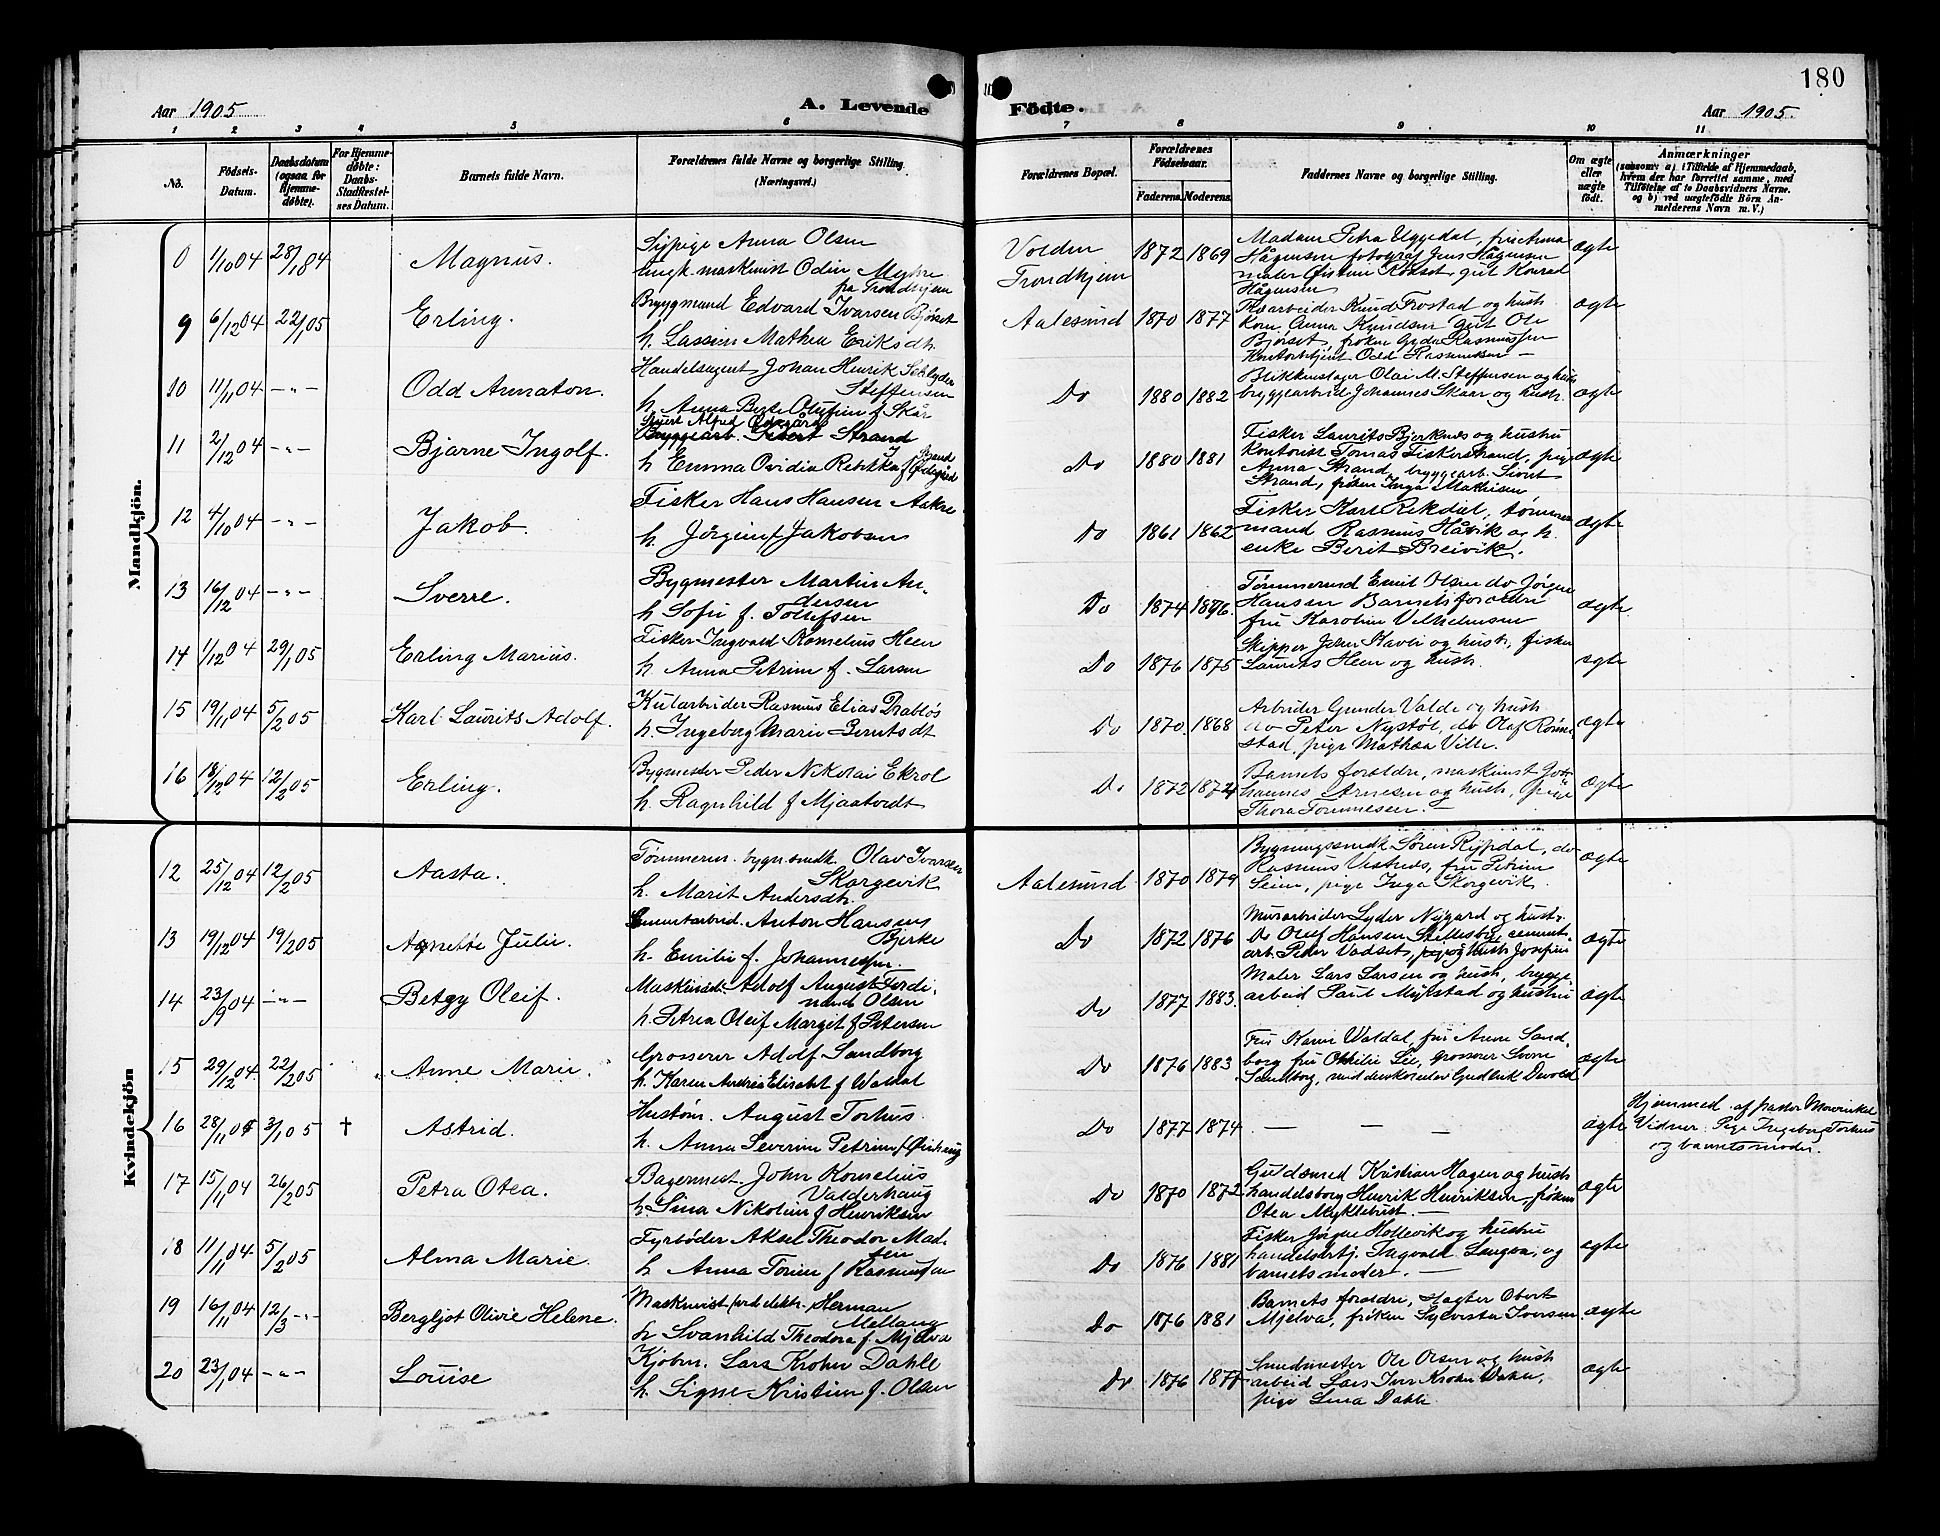 180
Aar 1905 A. Levende Födte. Aar 1905.
1 2 3 4 5 6 7 8 9 10 11
No.
Födsels-Datum.
Daabsdatum (ogsaa for Hjemme-döbte).
For Hjemme-döbte: Daabs-Stadfæstel-ses Datum.
Barnets fulde Navn.
Forældrenes fulde Navne og borgerlige Stilling.
(Næringsvei.)
Forældrenes Bopæl.
Forældrenes Födselsaar.
Faderens. Moderens.
Faddernes Navne og borgerlige Stilling.
Om ægte eller uægte födt.
Anmærkninger
(saasom: a) i Tilfælde af Hjemmedaab, hvem der har forrettet samme, med Tilföielse af to Daabsvidners Navne. og b) ved uægtefödte Börn An-melderens Navn m. V.)
Mandkjön.
0 1/10 04 28/1 84 Magnus. Sypige Anna Olsen
Ungk. maskinist Odin Myhre
fra Trondhjem
Volden
Trondhjem 1872 1869
Madam Petra Uggedal,
Hågensen fotograf Jens Hågensen
maler gut Konrad
Hågensen ægte
9 6/12 04 22/1 05 Erling. Bryggmand Edvard Ivarsen Bjørset
h. Lassine Mathea Eriksdtr.
Aalesund 1870 1877
Knud Frostad og hustr.
Anna Knudsen gut Ole
Bjørset, frøken Gyda Rasmussen
Kontorbetjent Odd Rasmussen — ægte
10 11/11 04 –„– Odd Annaton. Handelsagent Johan Henrik
Steffensen
h. Anna Berte Olufine f. Skår
Do 1880 1882
Blikkenslager Olai M. Steffensen og hustr
bryggearbeid. Johannes Skaar og hustr. ægte
11 2/12 04 –„– Bjarne Ingolf. Sivert Alfred Ødegård
Bryggearb. Sivert Strand
h. Emma Ovidia Rebekka f. Strand
Ødegård
Do 1880 1881
Fisker Laurits Bjerknes og hustru
Kontorist Tomas Fiskerstrand, pige
Anna Strand, bryggearb. Sivert
Strand, frøken Inga Mathisen ægte
12 4/10 04 –„– Jakob. Fisker Hans Hansen Aakre
h. Jörgine f Jakobsen
Do 1861 1862
Fisker Karl Rekdal, tømmer
mand Rasmus Håvik og h.
enke Berit Breivik. ægte
13 16/12 04 –„– Sverre. Bygmester Martin An-
dersen
h Sofie f. Tollefsen
Do 1874 1876.
Tømmermd Emil Olsen do Jörgen
Hansen Barnets forældre
fru Karoline Vilhelmsen ægte
14 1/12 04 29/1 05 Erling Marius. Fisker Ingvald Kornelius Heen
h. Anna Petrine f. Larsen
Do 1876 1875
Skipper Johan og hustr, fisker
Laurits Heen og hustr. ægte
15 19/11 04 5/2 05 Karl Laurits Adolf. Kularbeider Rasmus Elias Drabløs
h. Ingeborg Marie Berntsdt
Do 1870. 1868
Arbeider Gunder Valde og hustr
do Peter Nystøl, do Olaf Rønne
stad, pige Mathea Ville. ægte
16 18/12 04 12/2 05 Erling. Bygmester Peder Nikolai Ekrol
h. Ragnhild f Mjaatvedt
Do 1872 1874
Barnets forældre, maskinist Jo-
hannes Arnesen og hustr, pige
Thora Tommesen. — ægte
Kvindekjön
12 25/12 04 12/2 05 Aasta. Tömmerm. bygn.smdk. Olav Ivarsen
Skorgevik
h. Marit Andersdtr.
Aalesund 1870 1879
Bygningssmdk Søren Rypdal, do
Rasmus Vestnes, fru Petrine
Seim, pige Inga Skorgevik. ægte
13 19/12 04 19/2 05 Agnette Julie. Cementarbeid. Anton Hansen
Bjerke
h. Emilie f. Johannessen.
Do 1872 1876
Murarbeider Lyder Nygard og hustr.
Do Oluf Hansen cement-
arb. Peder Vadset, og hustr Josefine ægte
14 23/9 04 –„– Betzy Oleif. Adolf August Ferdi-
nand Olsen
h. Petrea Oleif Margit f Petersen
Do 1877 1883.
Maler Lars Larsen og hustr, brygge
arbeid Paul Mykstad og hustru ægte
15 29/12 04. 22/2 05 Anne Marie. Grosserer Adolf Sandborg
h. Karen Andrea Elisabet f Waldal
Do 1876 1883
Fru Karen Waldal, fru Anne Sand-
borg fru Othilie Lie, grosserer
Sandborg, Devold ægte
16 28/11 04 3/1 05 † Astrid. Hustöm. August Torhus.
h. Anna Severine Petrine f.
Do 1877 1874 — — — ægte
Hjemmed. af pastor Mowinkel
Vidner: Pige Ingeborg Torhus
og barnets moder.
17 15/11 04 26/2 05 Petra Otea. Bagermest. John Kornelius
Valderhaug
h. Lina Nikoline f Henriksen
Do 1870 1872
Guldsmed Kristian Hagen og hustr
handelsborg Henrik Henriksen, frøken
Otea Myklebust. — ægte
18 11/11 04 5/2 05 Alma Marie. Fyrbøder Aksel Theodor Mad-
sen
h. Anna Torine f Rasmussen
Do 1876 1881
Fisker Jörgen Hollevik og hustru
handelsbetj. Ingvald Langva, og
barnets moder. — ægte
19 16/11 04 12/3 –„– Bergljot Olivie Helene. Maskinist ved elektr. Herman
Mellang
h. Svanhild Theodora f. Mjelva
Do 1876 1881
Barnets forældre, slagter Obert
Mjelva, frøken Sylvester Iversen. ægte
20 23/1 04 –„– Louise Kjøbm. Lars Krohn Dahle
h. Signe Kristine f. Olsen
Do 1876 1877
Smedmester Ole Olsen og hustr
arbeid Lars Iver Krohn Dahle,
pige Lina Dahle. ægte